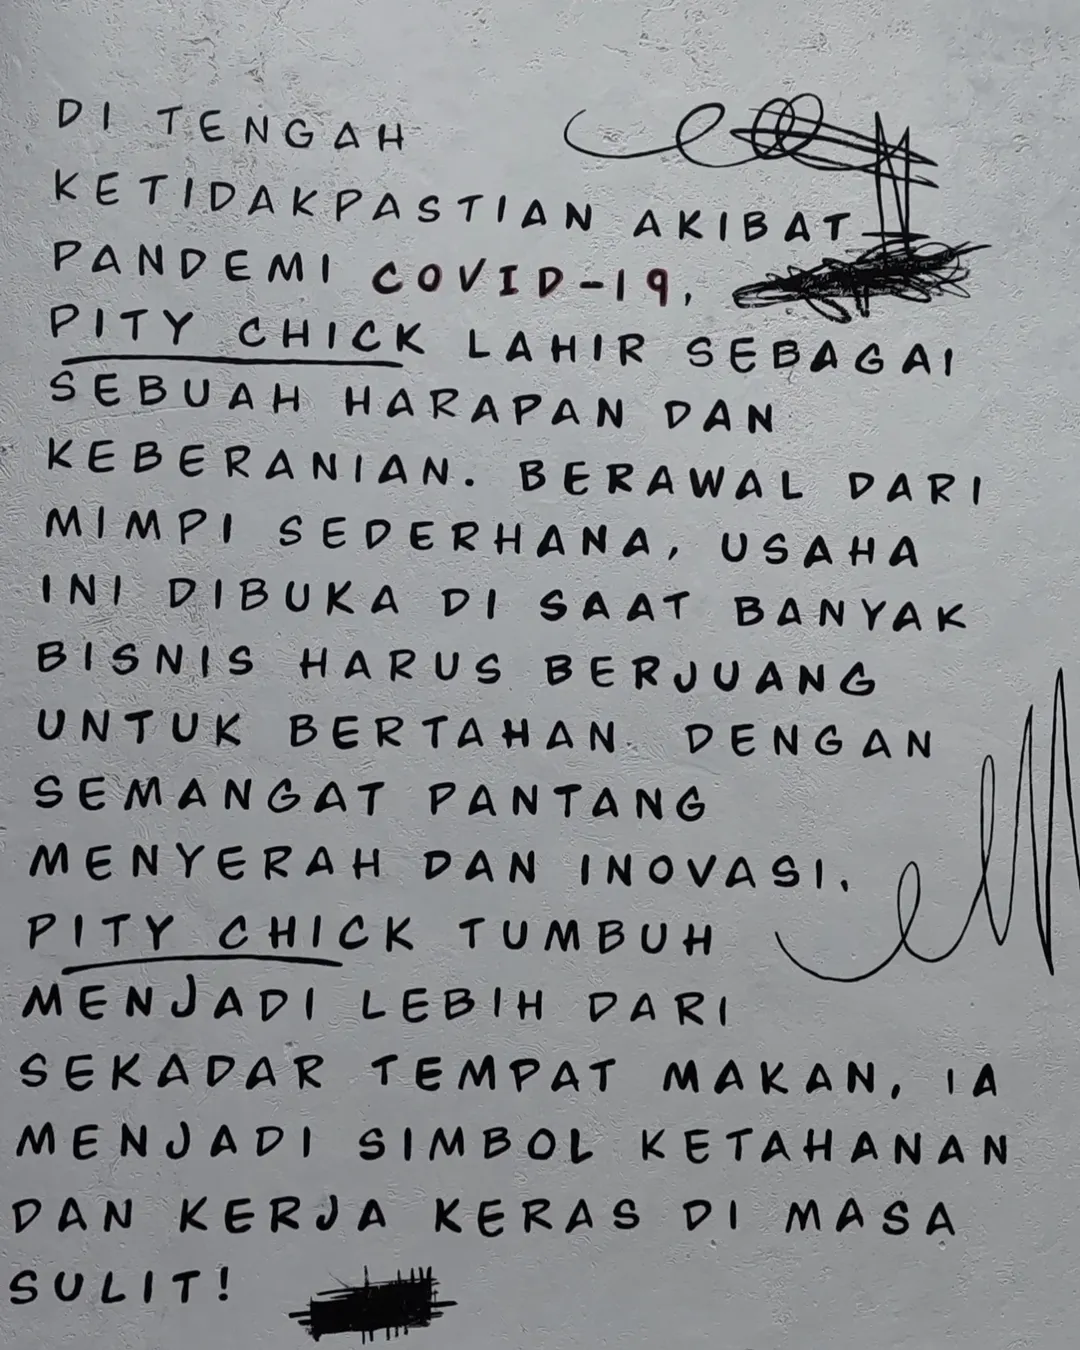 DI TENGAH
KETIDAKPASTIAN AKIBAT
PANDEMI COVID-19,
PITY CHICK LAHIR SEBAGAI
SEBUAH HARAPAN DAN
KEBERANIAN. BERAWAL DARI
MIMPI SEDERHANA, USAHA
INI DIBUKA DI SAAT BANYAK
BISNIS HARUS BERJUANG
UNTUK BERTAHAN. DENGAN
SEMANGAT PANTANG
MENYERAH DAN INOVASI.
PITY CHICK TUMBUH
MENJADI LEBIH DARI
SEKADAR TEMPAT MAKAN, IA
MENJADI SIMBOL KETAHANAN
DAN KERJA KERAS DI MASA
SULIT!